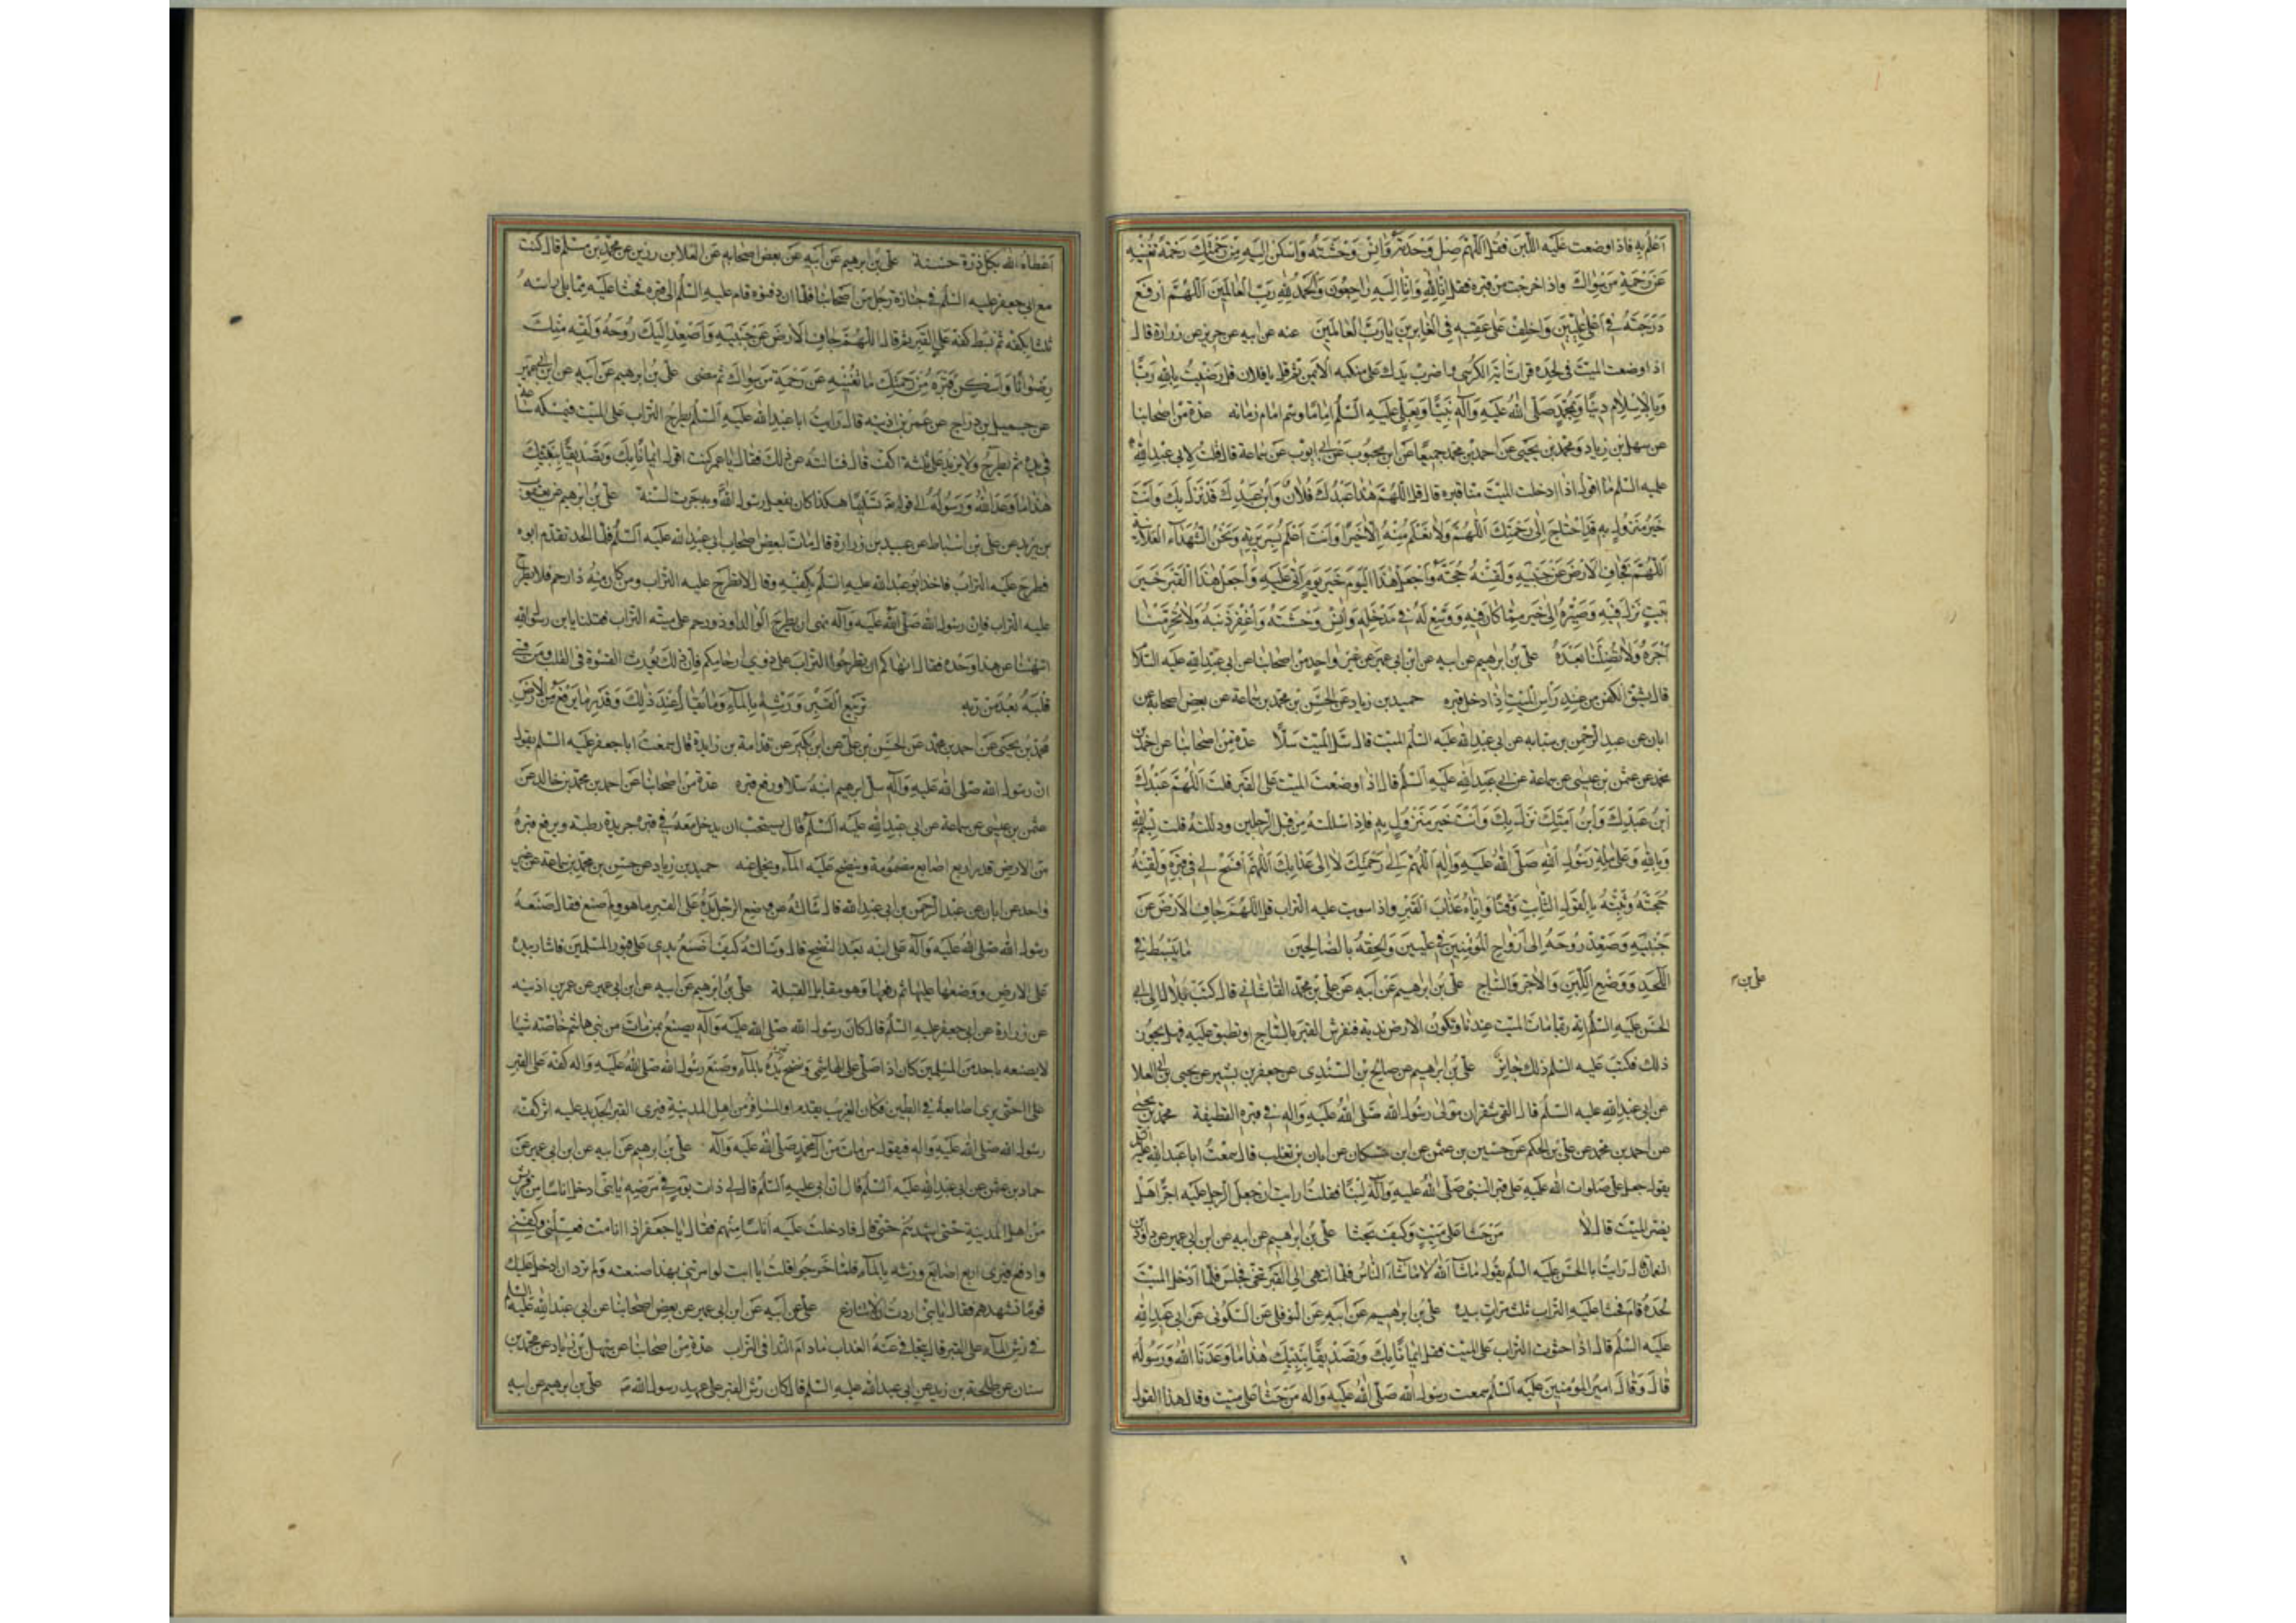 اَعْلَمُ بِهِ فاذا وضعت عَلَيه اللَّبن فقُل اَللّهمّ صِل وَحْدَتَهُ وَانِسْ وَحْشَتَهُ وَاَسْكِن اِلَيه مِنْ رَحْمَتِكَ رَحْمَةً تُغْنيهِ
عَنْ رَحْمَةِ مَنْ سِواكَ واذا خرجت من قبره فقل اِنّا لِلّهِ وَاِنّا اِلَيهِ رٰاجِعُونَ وَالْحَمْدُ لِلّهِ رَبِّ الْعالَمينَ اَللّهُمَّ ارْفَعْ
دَرَجَتَهُ فِي اَعْلىٰ عِلِّيّينَ وَاخْلُفْ عَلىٰ عَقِبِهِ فِي الْغابِرينَ يا رَبَّ الْعالَمينَ عنه عن ابيه عن حريز عن زرارة قال
اذا وضعت الميّت فى لحده قرات اية الكرسى واضرب يدك على منكبه الايمن ثم قل يا فلان قل رَضيتُ بِاللهِ رَبًّا
وَبِالاِسْلامِ دينًا وَبِمُحَمَّدٍ صَلَّى اللهُ عَلَيهِ وَآلِهِ نَبِيًّا وَبِعَلِيٍّ عَلَيهِ السَّلٰمُ اِمٰامًا وسمّ امام زمانه عدّة من اصحابنا
عن سهل بن زياد ومحمد بن يحيى عن احمد بن محمد جميعا عن ابن محبوب عن ابى ايوب عن سماعة قال قلت لابى عبد الله
عليه السلم ما اقول اذا ادخلت الميّت منا قبره قال قل اَللّهُمَّ هٰذا عَبْدُكَ فُلانٌ وَابْنُ عَبْدِكَ قَدْ نَزَلَ بِكَ وَاَنْتَ
خَيرُ مَنْزُولٍ بِهِ قَدِ احْتاجَ اِلىٰ رَحْمَتِكَ اَللّهُمَّ وَلا نَعْلَمُ مِنْهُ اِلّا خَيرًا وَاَنْتَ اَعْلَمُ بِسَريرَتِهِ وَنَحْنُ الشُّهَدآءُ بعَلانِيَتِهِ
اَللّهُمَّ فَجافِ الْاَرْضَ عَنْ جَنْبَيهِ وَلَقِّنْهُ حُجَّتَهُ وَاجْعَلْ هٰذَا الْيَومَ خَيرَ يَومٍ اَتىٰ عَلَيهِ وَاجْعَلْ هٰذَا الْقَبْرَ خَيرَ
بَيتٍ نَزَلَ فيهِ وَصَيِّرْهُ اِلىٰ خَيرٍ مِمّا كانَ فيهِ وَوَسِّعْ لَهُ فِي مَدْخَلِهِ وَآنِسْ وَحْشَتَهُ وَاغْفِرْ ذَنْبَهُ وَلا تَحْرِمْنا
اَجْرَهُ وَلا تُضِلَّنا بَعْدَهُ علىّ بن ابراهيم عن ابيه عن ابن ابى عمير عن غير واحد من اصحابنا عن ابى عبد الله عليه السلام
قال يشقّ الكفن من عند رأس الميّت اذا ادخل قبره حميد بن زياد عن الحسن بن محمد بن سماعة عن بعض اصحابه عن
ابان عن عبد الرّحمن بن سيابه عن ابى عبد الله عليه السلم الميّت قال سلّ الميّت سلًّا عدة من اصحابنا عن احمد بن
محمد عن عثمن بن عيسى عن سماعة عن ابى عبد الله عليه السلم قال اذا وضعت الميّت على القبر قلت اَللّهُمَّ عَبْدُكَ
ابْنُ عَبْدِكَ وَابْنُ اَمَتِكَ نَزَلَ بِكَ وَاَنْتَ خَيرُ مَنْزُولٍ بِهِ فاذا سللته من قبل الرّجلين ودلّلته قلت بِسْمِ اللهِ
وَبِاللهِ وَعَلىٰ مِلَّةِ رَسُولِ اللهِ صَلَّى اللهُ عَلَيهِ وَالِهِ اَللّهُمَّ اِلىٰ رَحْمَتِكَ لا اِلىٰ عَذابِكَ اَللّهُمَّ افْسَحْ لَهُ فِي قَبْرِهِ وَلَقِّنْهُ
حُجَّتَهُ وَثَبِّتْهُ بِالْقَولِ الثّابِتِ وَقِنا وَاِيّاهُ عَذابَ الْقَبْرِ واذا سويت عليه التراب قل اَللّهُمَّ جافِ الْاَرْضَ عَنْ
جَنْبَيهِ وَصَعِّدْ رُوحَهُ اِلىٰ اَرْواحِ الْمُؤْمِنينَ فِي عِلّيّينَ وَاَلْحِقْهُ بِالصّالِحينَ مٰا يُبْسَطُ فِي
اللَّحَدِ وَوَضْعِ اللَّبِنِ وَالْاجُرِّ وَالسّٰاجِ علىّ بن ابراهيم عن ابيه عن على بن محمد القاشانى قال كتب بلال الى ابى
الحسن عليه السلم انّه ربّما مات الميّت عندنا وتكون الارض نديّة فنفرش القبر بالسّاج او نطبق عليه فهل يجوز
ذلك فكتب عليه السلم ذلك جايز علىّ بن ابراهيم عن صالح بن السّندى عن جعفر بن بشير عن يحيى بن ابى العلا
عن ابى عبد الله عليه السلم قال القى شقران مولى رسول الله صلّى الله عليه وآله فى قبره القطيفة محمد بن يحيى
عن احمد بن محمد عن علىّ بن الحكم عن حسين بن عثمن عن ابن مسكان عن ابان بن تغلب قال سمعت ابا عبد الله عليه السلم
يقول جعل على صلوات الله عليه على قبر النبىّ صلى الله عليه وآله لبنًا فقلت ارايت ان جعل الرجل عليه اجرًّا هل
يضرّ الميّت قال لا مَنْ حَثا عَلىٰ مَيِّتٍ وَكَيفَ يُحْثا علىّ بن ابراهيم عن ابيه عن ابن ابى عمير عن داود بن
النعمان قال رايت ابا الحسن عليه السلم يقول ما شآء الله لا ما شآء النّاس فلمّا انتهى الى القبر تنحّى فجلس فلمّا ادخل الميّت
لحده قام فحثا عليه التراب ثلث مرّات بيده علىّ بن ابراهيم عن ابيه عن النوفلى عن السّكونى عن ابى عبد الله
عليه السلم قال اذا حثوت التراب على الميّت فقل ايمانًا بِكَ وَتَصْديقًا بِبَعْثِكَ هٰذا ما وَعَدَنَا اللهُ وَرَسُولُهُ
قال وقال امير المؤمنين عليه السلم سمعت رسول الله صلّى الله عليه واله من حثا على ميّت وقال هذا القول
على بن
اعطاه الله بكلّ ذرّة حسنة علىّ بن ابراهيم عن ابيه عن بعض اصحابه عن العلا بن رزين عن محمّد بن مسلم قال كنت
مع ابى جعفر عليه السلم فى جنازة رجل من اصحابنا فلمّا ان دفنوه قام عليه السلم الى قبره فحثا عليه ممّا يلى راسه
ثلثا بكفّه ثم بسط كفّه على القبر ثم قال اَللّهُمَّ جافِ الْاَرْضَ عَنْ جَنْبَيهِ وَاَصْعِدْ اِلَيكَ رُوحَهُ وَلَقِّهِ مِنْكَ
رِضْوانًا وَاَسْكِنْ قَبْرَهُ مِنْ رَحْمَتِكَ ما تُغْنيهِ عَنْ رَحْمَةِ مَنْ سِواكَ ثم مضى علىّ بن ابراهيم عن ابيه عن ابن ابى عمير
عن جميل بن دراج عن عمر بن اذينه قال رايت ابا عبد الله عليه السلم يطرح التراب على الميّت فيمسكه ساعة
فى يده ثم يطرحه ولا يزيد على ثلثة اكفّ قال فسالته عن ذلك فقال يا عمر كنت اقول ايمانًا بِكَ وَتَصْديقًا بِبَعْثِكَ
هٰذا ما وَعَدَ اللهُ وَرَسُولُهُ الى قوله تَسْليمًا هكذا كان يفعل رسول الله وبه جرت السّنة علىّ بن ابراهيم عن يعقوب
بن يزيد عن على بن اسباط عن عبيد بن زرارة قال مات لبعض اصحاب ابى عبد الله عليه السلم فلمّا الحد تقدّم ابوه
فطرح عليه التراب فاخذ ابو عبد الله عليه السلم بكفّيه وقال لا تطرح عليه التراب ومن كان منه ذا رحم فلا يطرح
عليه التراب فانّ رسول الله صلّى الله عليه وآله نهى ان يطرح الوالد او ذو رحم على ميّته التراب فقلنا يا بن رسول الله
اتنهانا عن هذا وحده فقال انهاكم ان تطرحوا التراب على ذوى ارحامكم فانّ ذلك يورث القسوة فى القلب ومن قسى
قلبه بعد من ربه تَرْبيعِ الْقَبْرِ وَرَشِّهِ بِالْمآءِ وَما يُقالُ عِنْدَ ذٰلِكَ وَقَدْرِ ما يُرْفَعُ مِنَ الْاَرْضِ
محمد بن يحيى عن احمد بن محمد عن الحسن بن على عن ابن بكير عن قدامة بن زايدة قال سمعت ابا جعفر عليه السلم يقول
انّ رسول الله صلى الله عليه وآله سلّ ابراهيم ابنه سلّا ورفع قبره عدة من اصحابنا عن احمد بن محمد بن خالد عن
عثمن بن عيسى عن سماعة عن ابى عبد الله عليه السلم قال يستحبّ ان يدخل معه فى قبره جريدة رطبة ويرفع قبره
من الارض قدر اربع اصابع مضمومة وينضح عليه المآء ويخلى عنه حميد بن زياد عن حسن بن محمد بن سماعة عن غير
واحد عن ابان عن عبد الرحمن بن ابى عبد الله قال سالته عن وضع الرّجل يده على القبر ما هو ولم صنع فقال صنعه
رسول الله صلى الله عليه وآله على ابنه بعد النّضح قال وسالته كيف اضع يدى على قبور المسلمين فاشار بيده
على الارض ووضعها عليها ثم رفعها وهو مقابل القبلة علىّ بن ابراهيم عن ابيه عن ابن ابى عمير عن عمر بن اذينه
عن زرارة عن ابى جعفر عليه السلم قال كان رسول الله صلى الله عليه وآله يصنع بمن مات من بنى هاشم خاصّة شيئا
لا يصنعه باحد من المسلمين كان اذا صلّى على الهاشمى ونضح قبره بالمآء وضع رسول الله صلى الله عليه واله كفّه على القبر
حتّى يرى اصابعه فى الطين فكان الغريب يقدم او المسافر من اهل المدينة فيرى القبر الجديد عليه اثر كفّ
رسول الله صلى الله عليه واله فيقول من مات من آل محمد صلى الله عليه وآله علىّ بن ابراهيم عن ابيه عن ابن ابى عمير عن
حماد بن عثمن عن ابى عبد الله عليه السلم قال انّ ابى عليه السلم قال لى ذات يوم فى مرضه يا بنىّ ادخل اناسًا من قريش
من اهل المدينة حتّى اشهدهم حتّى قال فادخلت عليه اناسًا منهم فقال يا جعفر اذا انا متّ فغسّلنى وكفّنّى
وارفع قبرى اربع اصابع ورشّه بالمآء فلمّا خرجوا قلت يا ابت لو امرتنى بهذا صنعته ولم ترد ان ادخل عليك
قومًا تشهدهم فقال يا بنىّ اردت ان لا تنازع على عن ابيه عن ابن ابى عمير عن بعض اصحابنا عن ابى عبد الله عليه السلم
فى رشّ المآء على القبر قال يتجافى عنه العذاب ما دام النّدا فى التراب عدة من اصحابنا عن سهل بن زياد عن محمد بن
سنان عن طلحة بن زيد عن ابى عبد الله عليه السلم قال كان رشّ القبر على عهد رسول الله ص علىّ بن ابراهيم عن ابيه